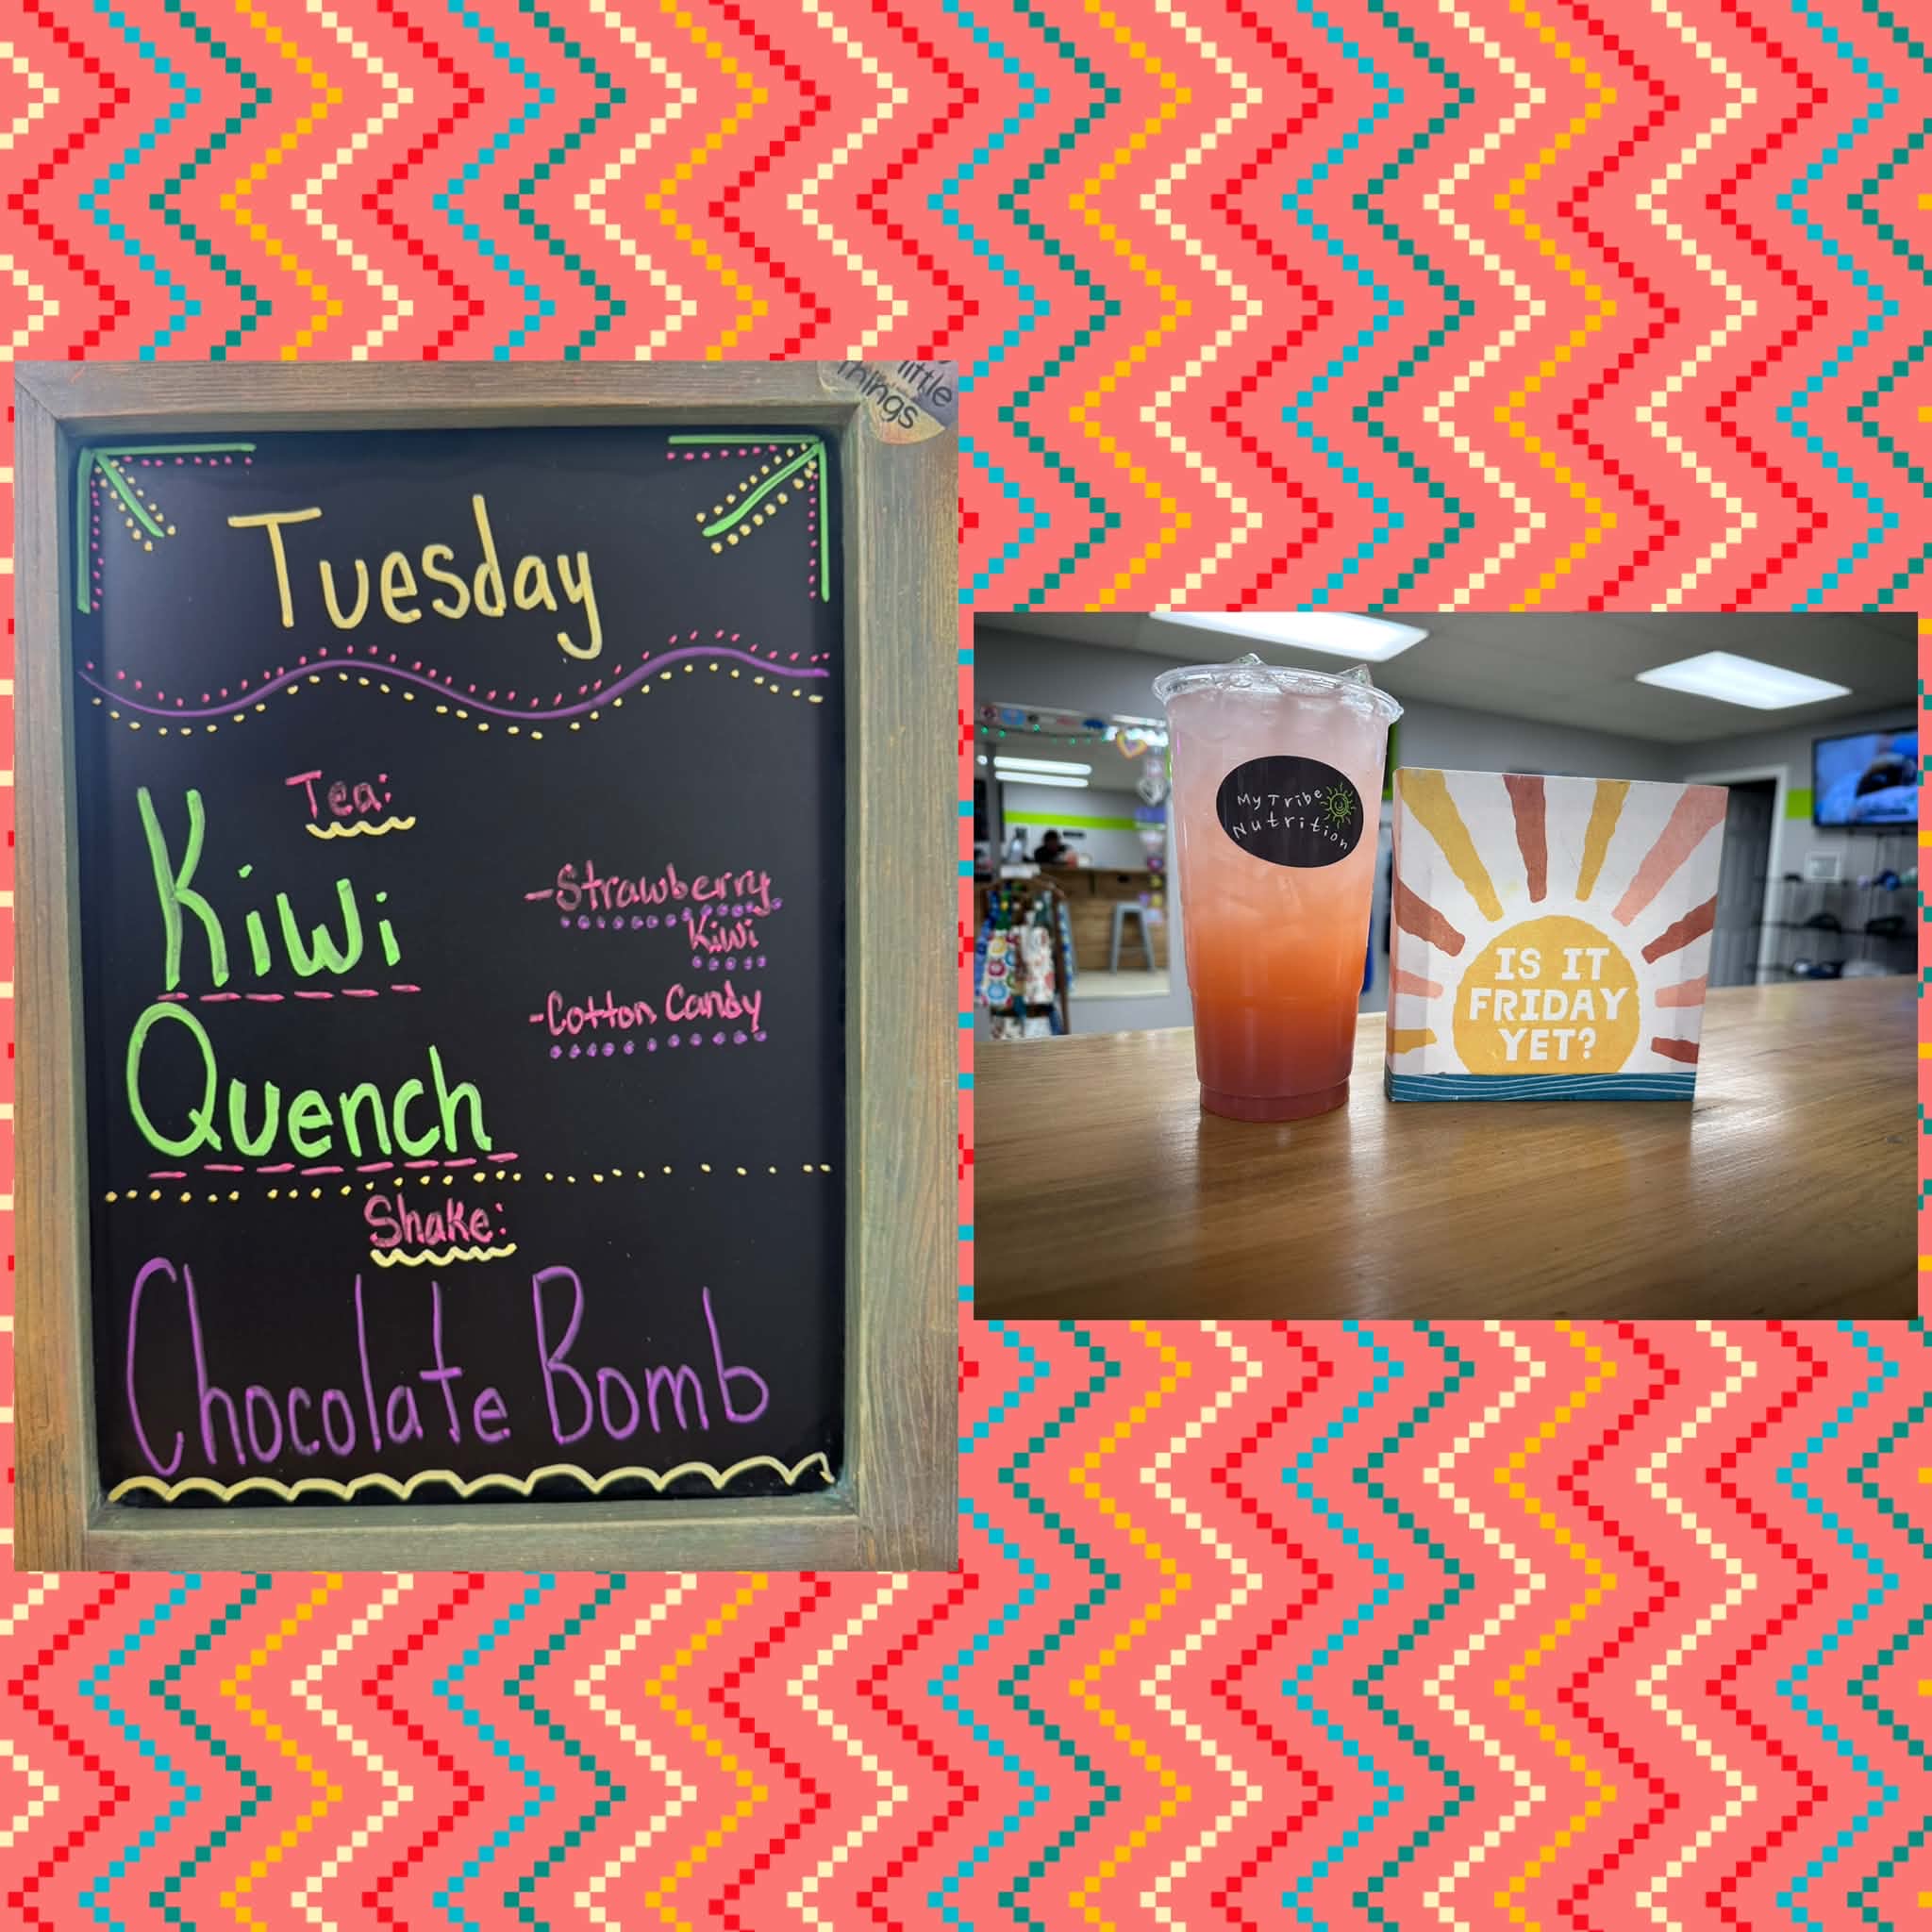 little
Things
Tuesday
Tea:
Kiwi
Quench
-Strawberry
Kiwi
-Cotton Candy
Shake:
Chocolate Bomb
My Tribe
Nutrition
IS IT
FRIDAY
YET?